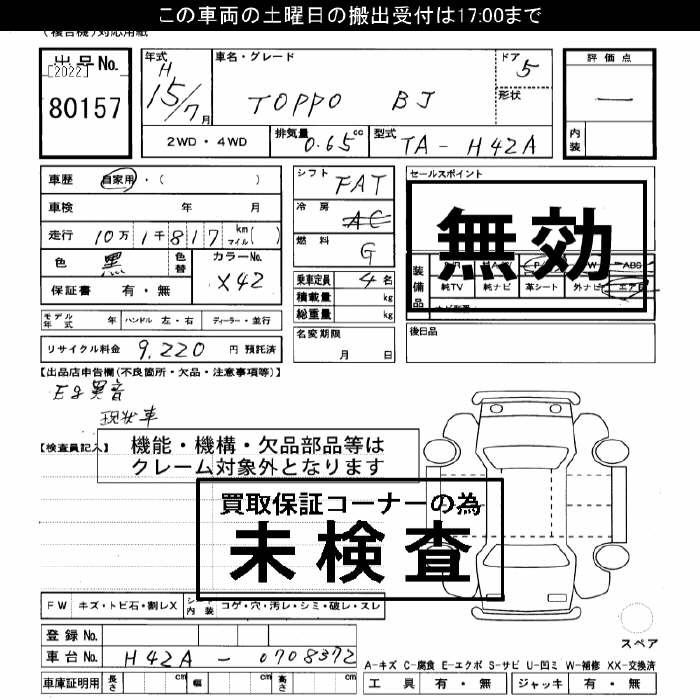 この車両の土曜日の搬出受付は17:00まで
(複合機)対応用紙
出品No. [2022] 80157
年式 H 15/7月
車名・グレード TOPPO BJ
ドア 5
形状
評価点 —
内装
2WD・4WD
排気量 0.65cc
型式 TA-H42A
車歴 自家用・( )
車検 年 月
走行 10万1千817km マイル( )
色 黒 色替 カラーNo. X42
保証書 有・無
シフト FAT
冷房 AC
燃料 G
乗車定員 4名
積載量 kg
総重量 kg
セールスポイント
無効
装備品
ABS
純TV 純ナビ 革シート 外ナビ エアB
モデル年式 年 ハンドル 左・右 ディーラー・並行
名変期限 月 日
後日品
リサイクル料金 9,220 円 預託済
【出品店申告欄(不良箇所・欠品・注意事項等)】
Eg異音
現状車
【検査員記入】
機能・機構・欠品部品等は
クレーム対象外となります
買取保証コーナーの為
未検査
FW キズ・トビ石・割レX シート内装 コゲ・穴・汚レ・シミ・破レ・スレ
スペア
登録No.
車台No. H42A-0708372
A-キズ C-腐食 E-エクボ S-サビ U-凹ミ W-補修 XX-交換済
車庫証明用 長さ cm 幅 cm 高さ cm
工具 有・無 ジャッキ 有・無